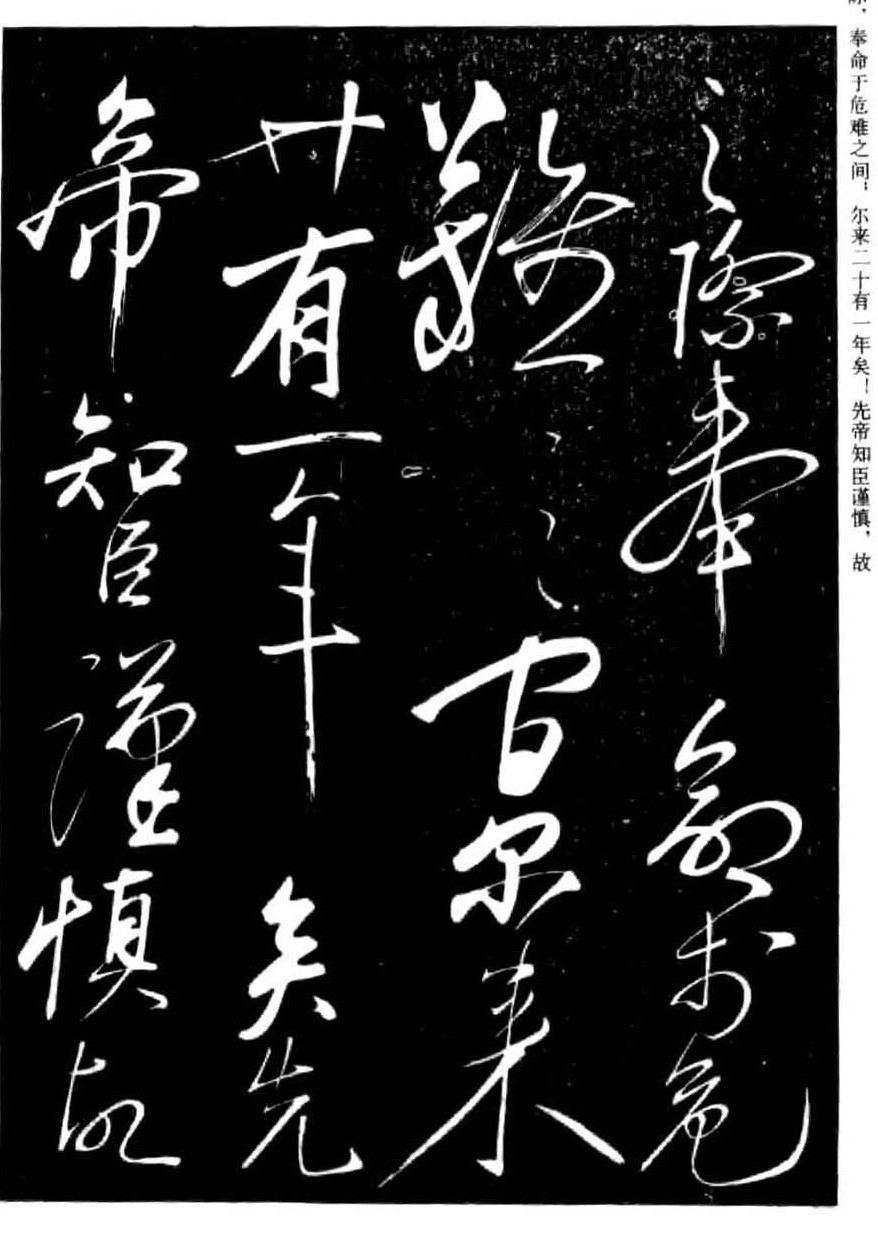 、奉命于危难之间；尔来二十有一年矣！先帝知臣谨慎，故
之際奉命於危
難之間尔来
廿有一年矣先
帝知臣謹慎故